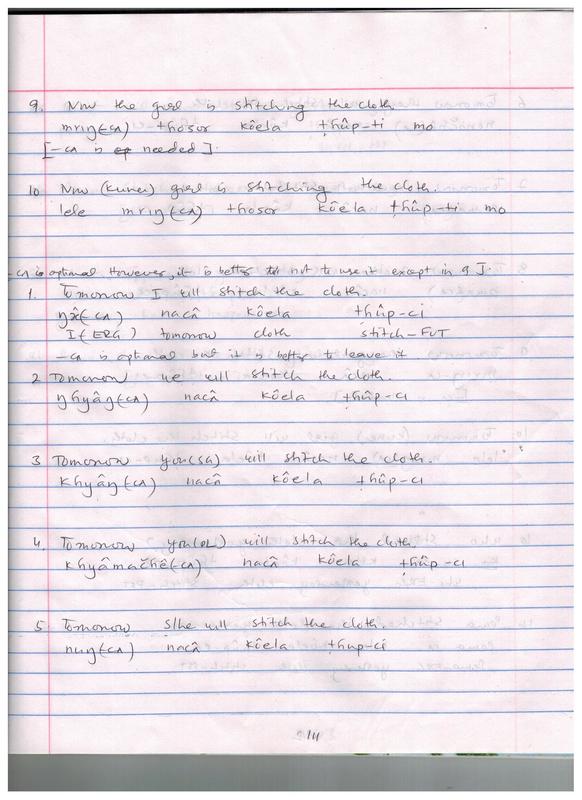 9. Now the girl is stitching the cloth.
mriŋ(-ca) thosor kôela ṭhûp-ti mo
[-ca is needed].
10 Now (Kunei) girl is stitching the cloth.
lele mriŋ(-ca) thosor kôela ṭhûp-ti mo
-ca is optimal However, it is better not to use it except in 9].
1. Tomorrow I will stitch the cloth.
(ca) nacâ kôela ṭhûp-ci
I (ERG) tomorrow cloth stitch-FUT
-ca is optimal but it is better to leave it
2 Tomorrow we will stitch the cloth.
ŋhyâŋ(-ca) nacâ kôela ṭhûp-ci
3 Tomorrow you(SG) will stitch the cloth.
Khyâŋ(-ca) nacâ kôela ṭhûp-ci
4. Tomorrow you(PL) will stitch the cloth.
Khyâmačhê(-ca) nacâ kôela ṭhûp-ci
5. Tomorrow s/he will stitch the cloth.
(-ca) nacâ kôela ṭhup-ci